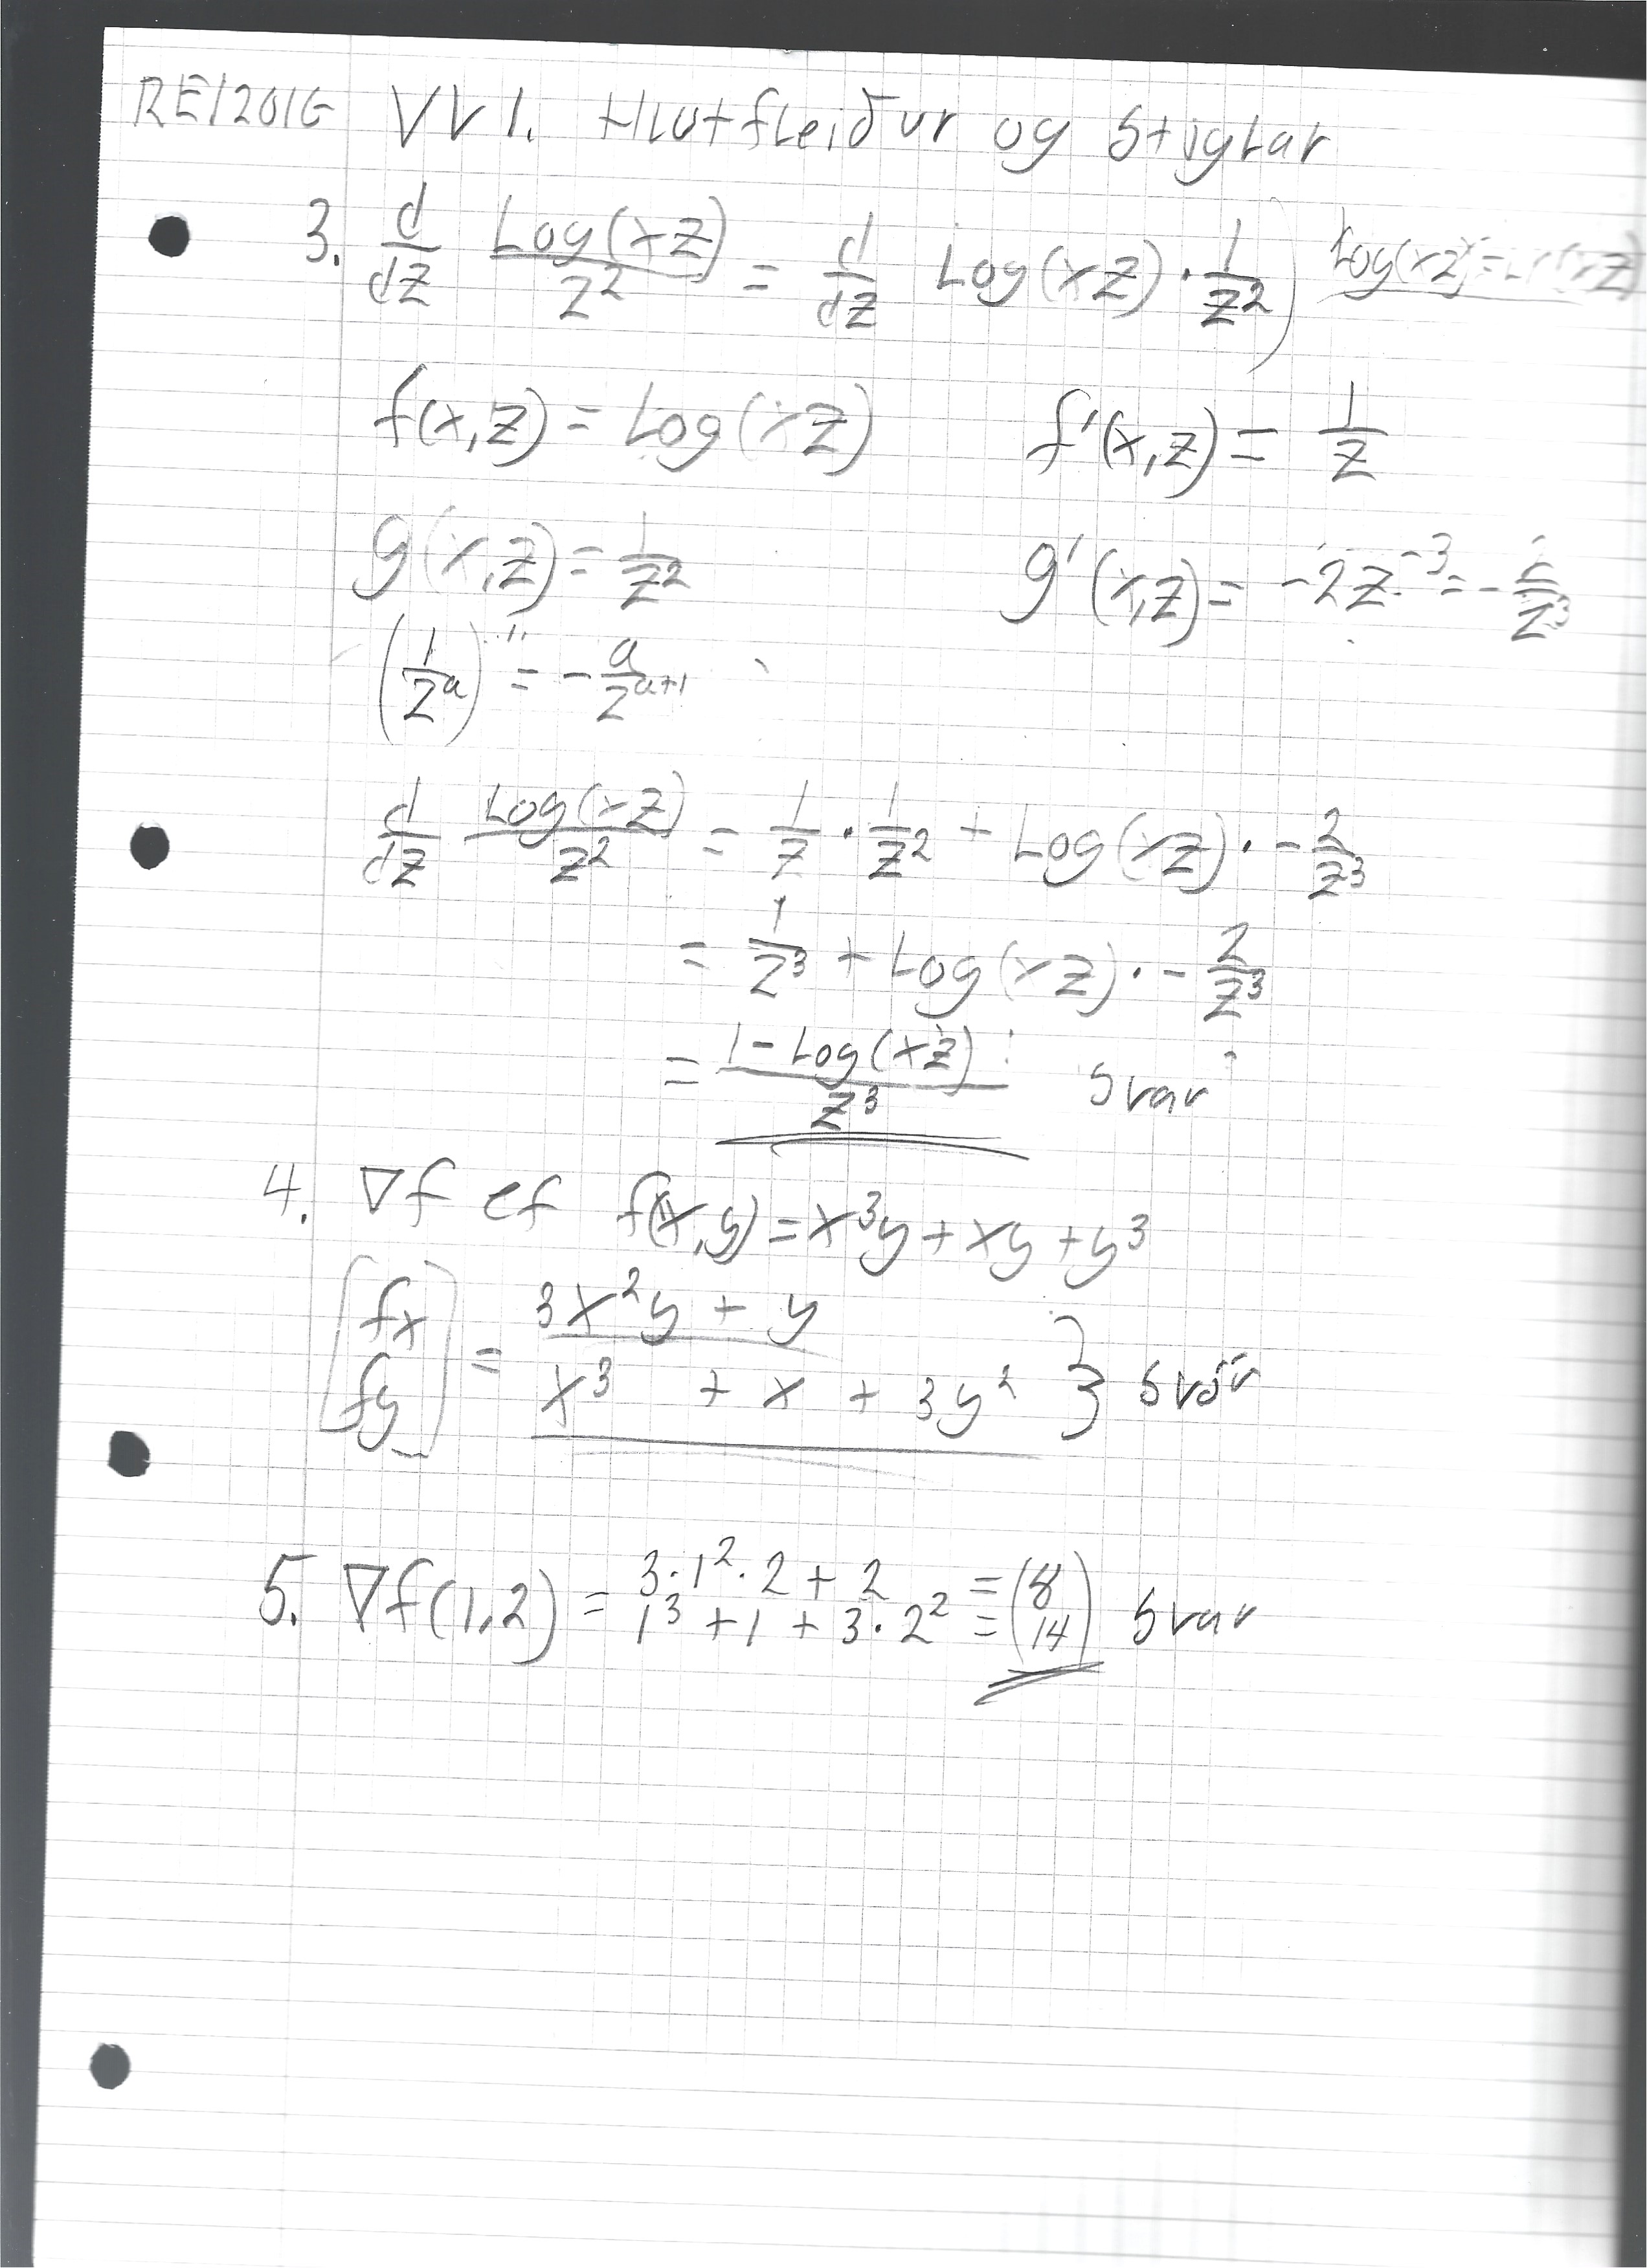 RE1201G VV1. Hlutfleiður og Stiglar
3. d/dz Log(xz)/z² = d/dz Log(xz) · 1/z² )
f(x,z) = Log(xz) f'(x,z) = 1/z
g(x,z) = 1/z² g'(x,z) = -2z⁻³ = -2/z³
(1/zᵃ)' = -a/zᵃ⁺¹
d/dz Log(xz)/z² = 1/z · 1/z² + Log(xz) · -2/z³
= 1/z³ + Log(xz) · -2/z³
= 1-Log(xz)/z³ Svar
4. ∇f ef f(x,y) = x³y + xy + y³
[fx fy] = 3x²y + y
x³ + x + 3y² } Svör
5. ∇f(1,2) = 3·1²·2 + 2 = (8
1³ + 1 + 3·2² = 14) Svar